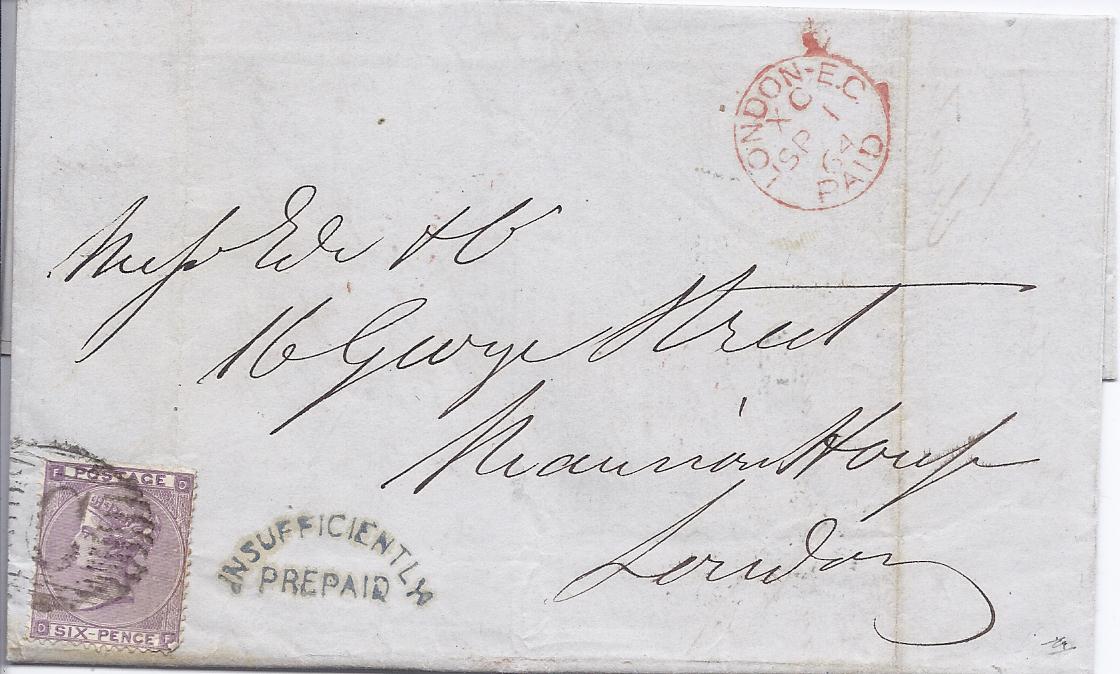 LONDON-E.C.
XC
SP 1
64
PAID
Mess
16 George Street
Mansion House
London
F POSTAGE O
O SIX-PENCE F
INSUFFICIENTLY
PREPAID